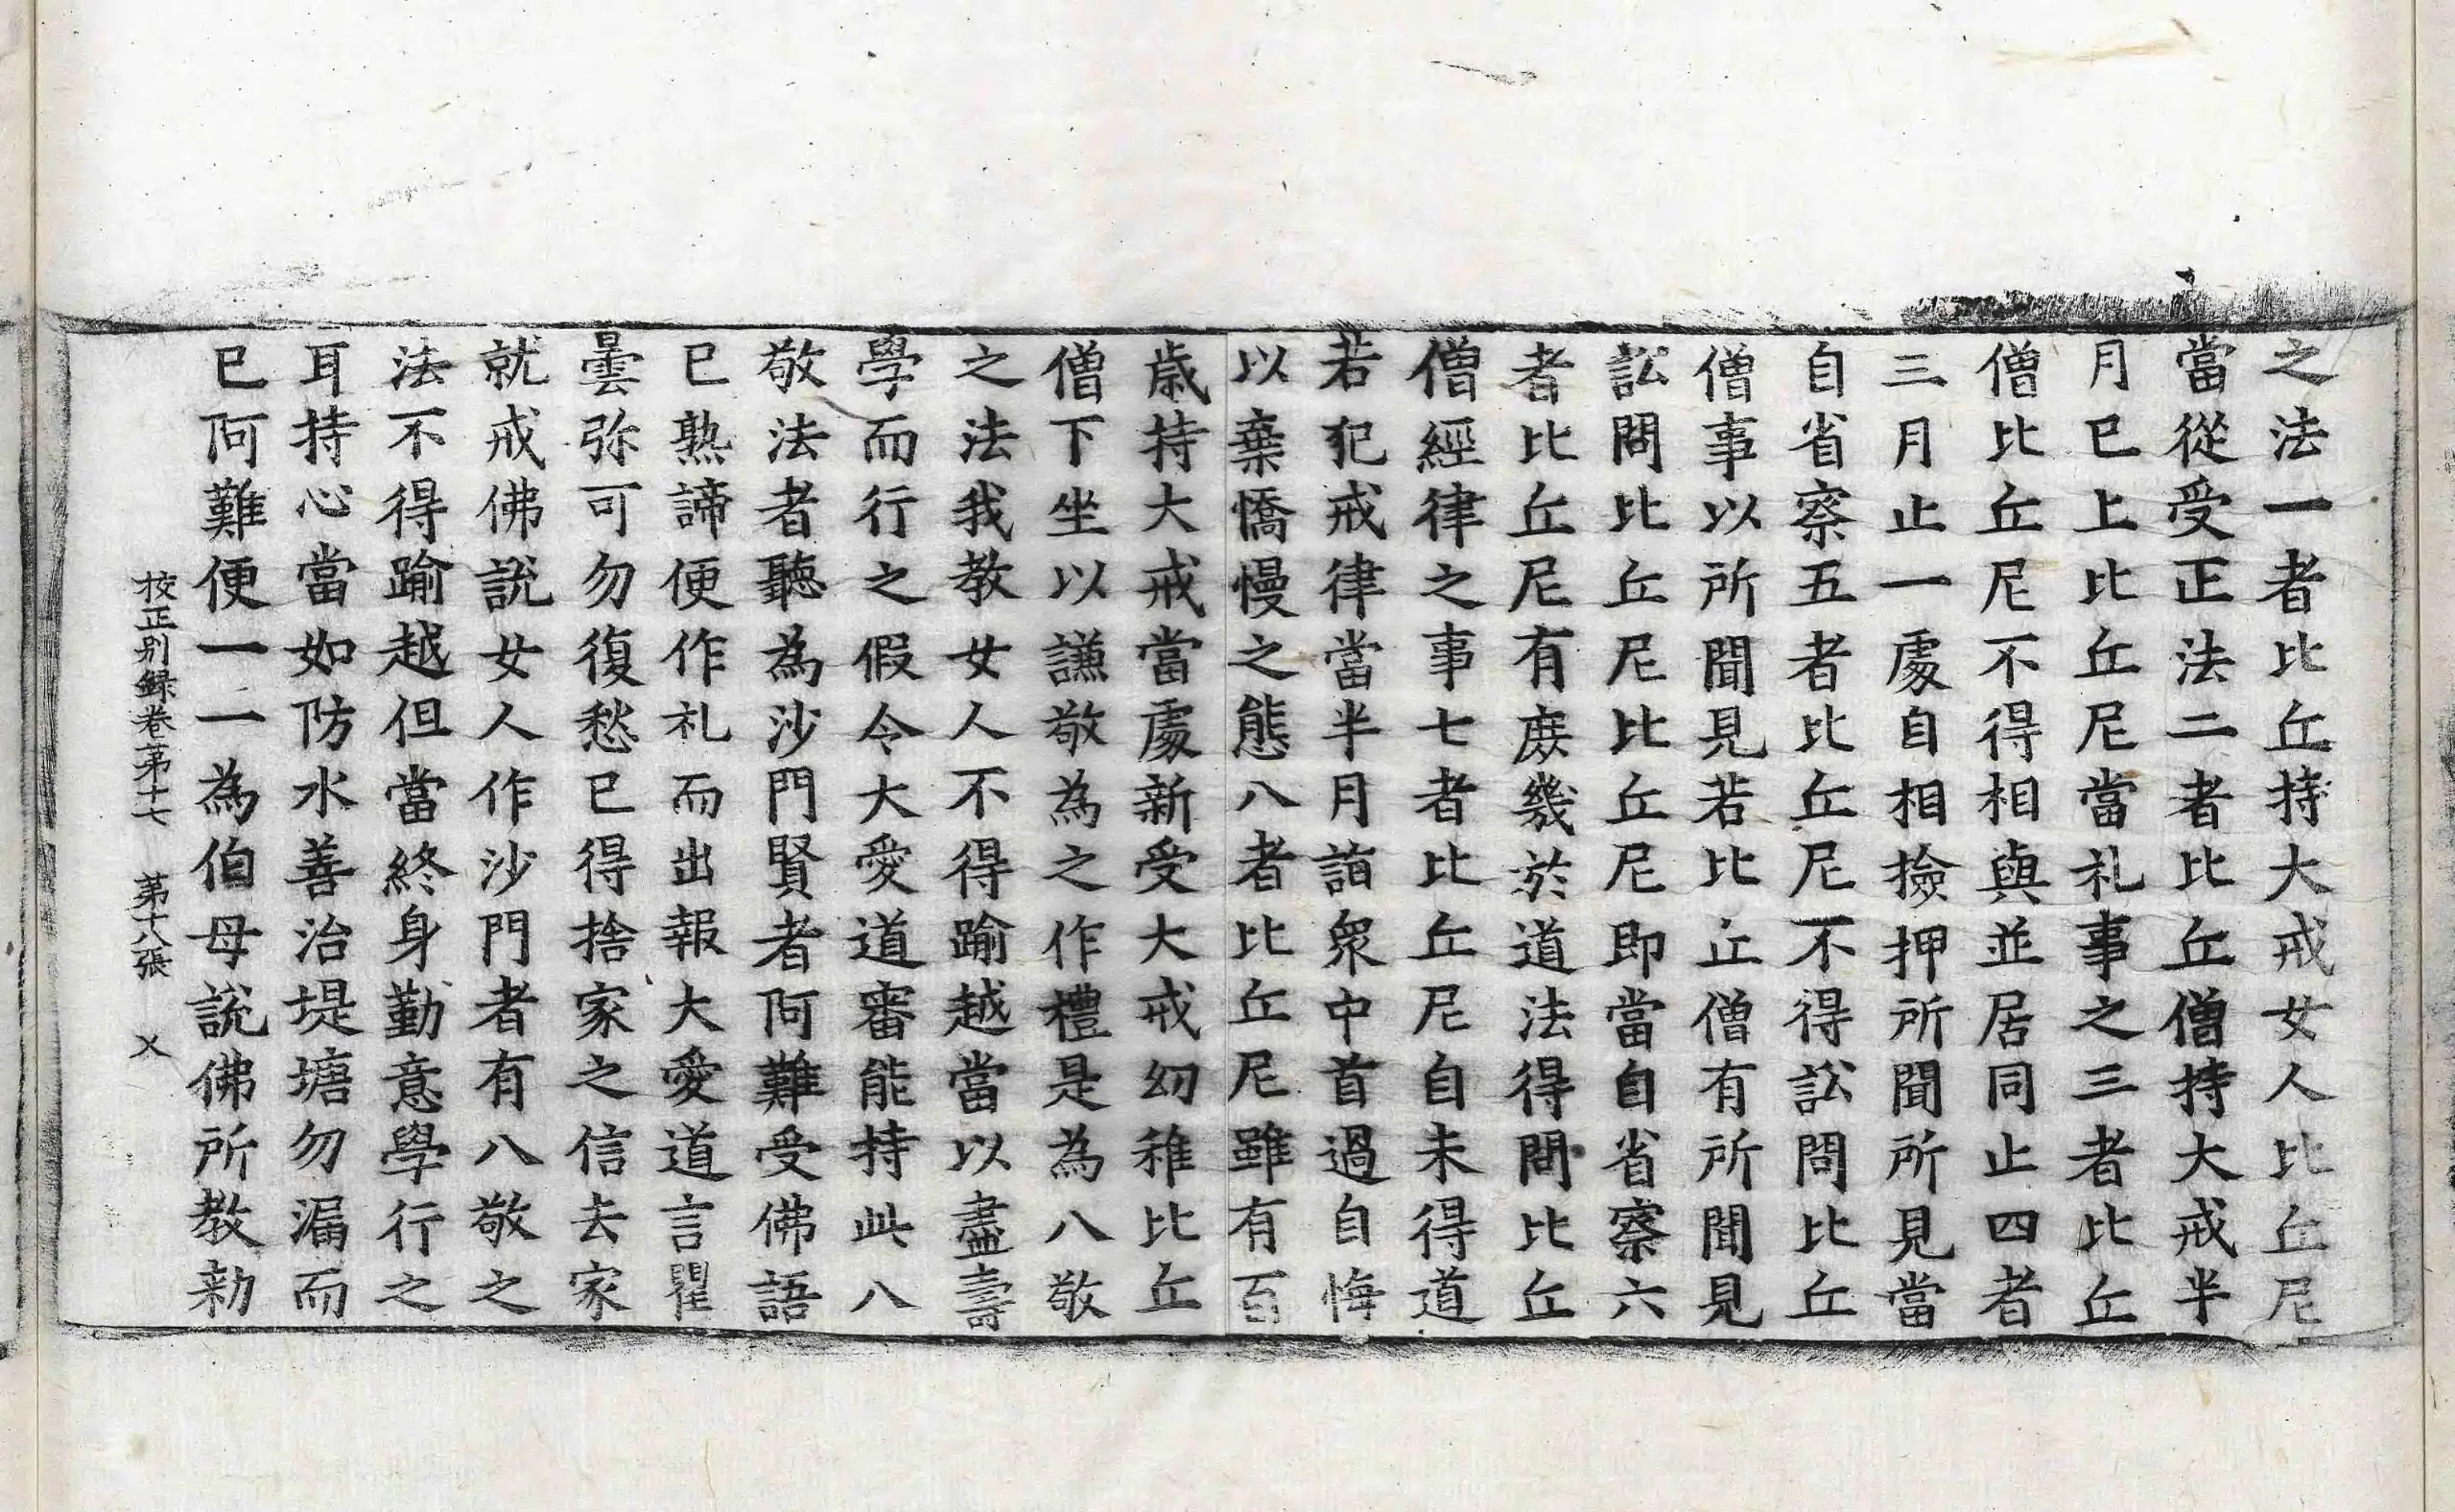 之法一者比丘持大戒女人比丘尼
當從受正法二者比丘僧持大戒半
月已上比丘尼當礼事之三者比丘
僧比丘尼不得相與並居同止四者
三月止一處自相撿押所聞所見當
自省察五者比丘尼不得訟問比丘
僧事以所聞見若比丘僧有所聞見
訟問比丘尼比丘尼即當自省察六
者比丘尼有庻幾於道法得問比丘
僧經律之事七者比丘尼自未得道
若犯戒律當半月詣衆中首過自悔
以棄憍慢之態八者比丘尼雖有百
歳持大戒當處新受大戒幼稚比丘
僧下坐以謙敬為之作禮是為八敬
之法我教女人不得踰越當以盡壽
學而行之假令大愛道審能持此八
敬法者聽為沙門賢者阿難受佛語
已熟諦便作礼而出報大愛道言瞿
曇弥可勿復愁已得捨家之信去家
就戒佛說女人作沙門者有八敬之
法不得踰越但當終身勤意學行之
耳持心當如防水善治堤塘勿漏而
已阿難便一一為伯母說佛所教勑
校正別録卷第十七 第十八張 乂